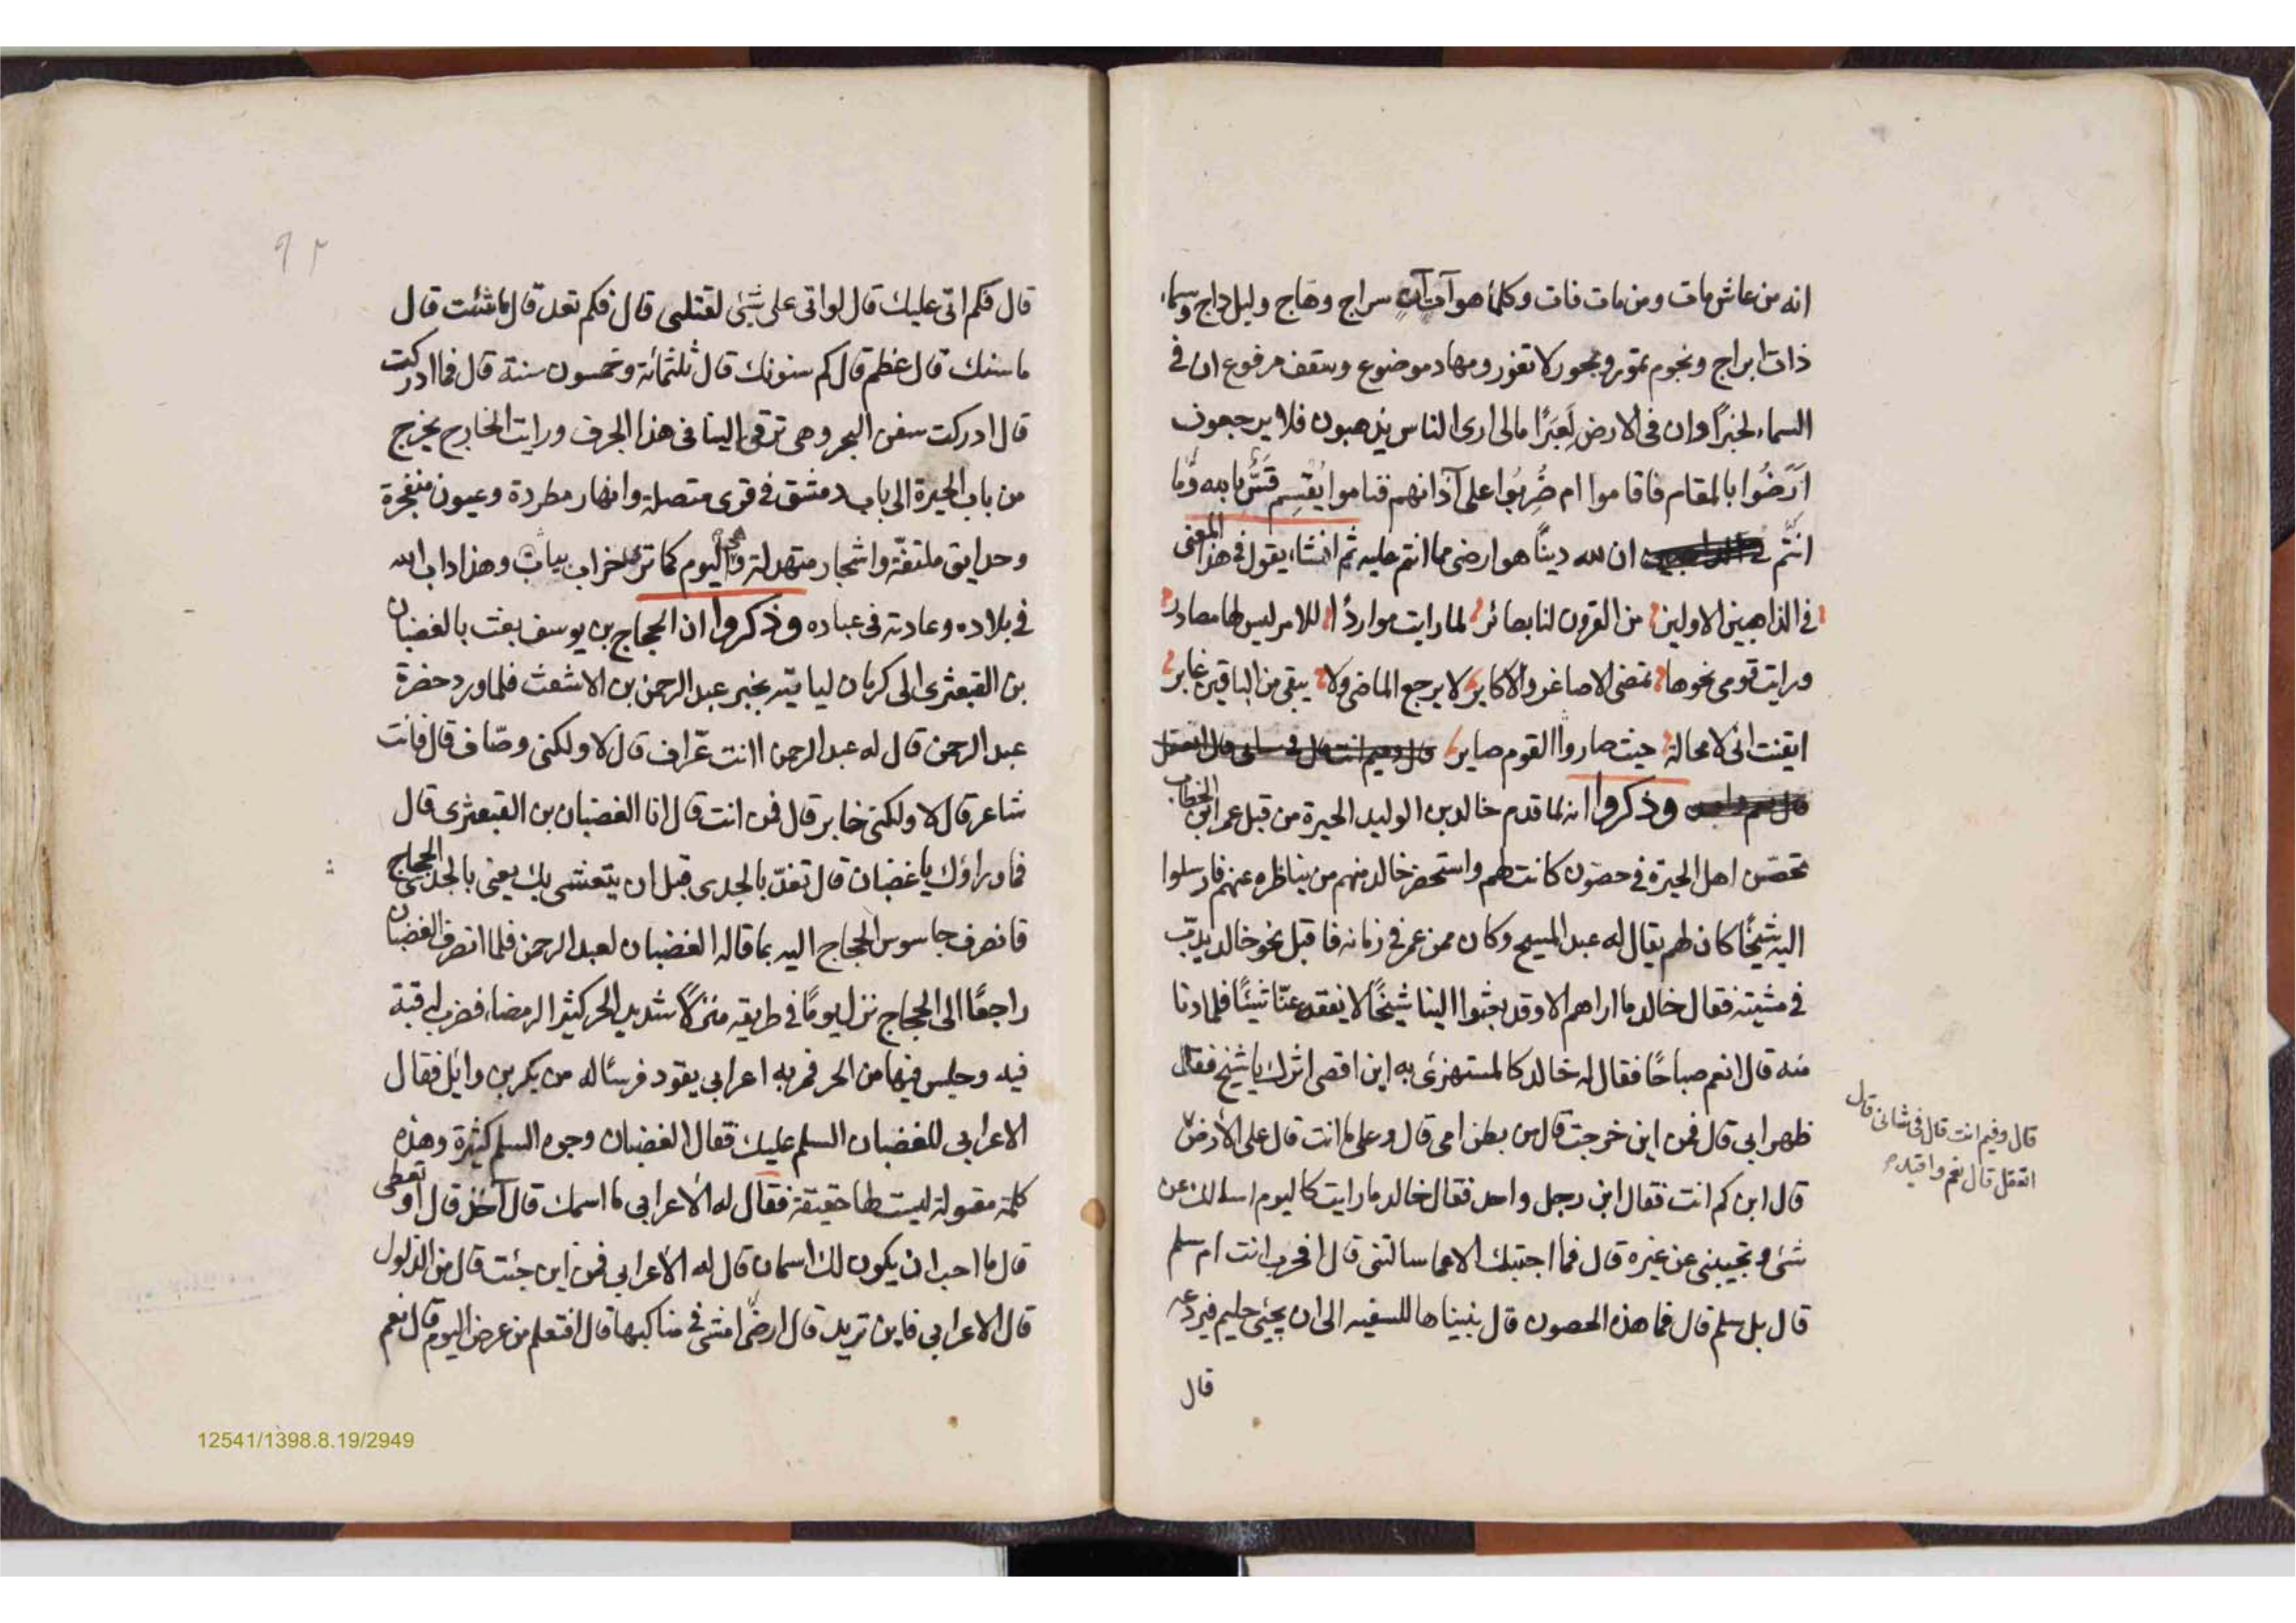 انه من عاش مات ومن مات فات وكلما هو آت آت سراج وهاج وليل داج وسماء
ذات ابراج ونجوم تمور وبحور لا تغور ومهاد موضوع وسقف مرفوع ان في
السماء لخبرًا وان في الارض لَعِبَرًا مالي ارى الناس يذهبون فلا يرجعون
اَرَضُوا بالمقام فاقاموا ام ضُرِبُوا على آذانهم فناموا يُقسِم قسٌّ بالله وَما
انتم ان لله دينًا هو ارضى مما انتم عليه ثم انشاء يقول في هذا المعنى
في الذاهبين الاولين من القرون لنا بصائر لما رايت مواردًا للامر ليس لها مصادر
ورايت قومى نحوها تمضى الاصاغر والاكابر لا يرجع الماضى ولا يبقى من الباقين غابر
ايقنت انى لا محالة حيث صاروا القوم صاير قال وفيم انت قال فى شانى قال اتعقل
قال نعم واقيد وذكروا انه لما قدم خالد بن الوليد الحيرة من قبل عمر ابن الخطاب
تحصّن اهل الحيرة في حصون كانت لهم واستحضر خالد منهم من يناظره عنهم فارسلوا
اليه شيخًا كان لهم يقال له عبد المسيح وكان ممن عمر في زمانه فاقبل نحو خالد يدبّ
في مشيته فقال خالد ما اراهم الا وقد بعثوا الينا شيخًا لا يفقه عنّا شيئًا فلما دنا
منه قال انعم صباحًا فقال له خالد كالمستهزئ به اين اقصى اثرك يا شيخ فقال
ظهر ابى قال فمن اين خرجت قال من بطن امى قال وعلى ما انت قال على الأرض
قال وفيم انت قال فى شانى قال
اتعقل قال نعم واقيد
قال ابن كم انت فقال ابن رجل واحد فقال خالد ما رايت كاليوم اسالك عن
شئ وتجيبنى عن غيره قال فما اجبتك الا عما سالتنى قال افحرب انت ام سلم
قال بل سلم قال فما هذه الحصون قال بنيناها للسفيه الى ان يجئ حليم فيردعه
قال
٩٢
قال فكم اتى عليك قال لو اتى على شئ لقتلنى قال فكم تعد قال ما شئت قال
ما سنك قال عظم قال كم سنونك قال ثلثمائة وخمسون سنة قال فما ادركت
قال ادركت سفن البحر وهى ترقى الينا فى هذا الجرف ورايت الخارج يخرج
من باب الحيرة الى باب دمشق في قرى متصلة وانهار مطردة وعيون منفجرة
وحدايق ملتفّة واشجار متهدلة واليوم كما ترى خراب يباب وهذا داب الله
في بلاده وعادته فى عباده وذكروا ان الحجاج بن يوسف بعث بالغضبان
بن القبعثرى الى كرمان لياتيه بخبر عبد الرحمن بن الاشعث فلما ورد حضرة
عبد الرحمن قال له عبد الرحمن اانت عرّاف قال لا ولكنى وصّاف قال فانت
شاعر قال لا ولكنى خابر قال فمن انت قال انا الغضبان بن القبعثرى قال
فما وراؤك يا غضبان قال تغدّ بالجدى قبل ان يتعشى بك يعنى بالجدى الحجاج
فانصرف جاسوس الحجاج اليه بما قاله الغضبان لعبد الرحمن فلما انصرف الغضبان
راجعًا الى الحجاج نزل يومًا في طريقه منزلًا شديد الحر كثير الرمضاء فضرب له قبة
فيه وجلس فيها من الحر فمر به اعرابى يقود فرسًا له من بكر بن وائل فقال
الاعرابى للغضبان السلم عليك فقال الغضبان وجوه السلم كثيرة وهذه
كلمة مقبولة ليست لها حقيقة فقال له الأعرابى ما اسمك قال آخذ قال او تعطى
قال ما احب ان يكون لك اسمان قال له الأعرابى فمن اين جئت قال من الذلول
قال الاعرابى فاين تريد قال ارضًا امشى في مناكبها قال افتعلم من عرض اليوم قال نعم
12541/1398.8.19/2949